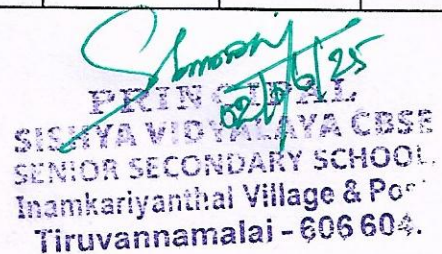 02/06/25
PRINCIPAL
SISHYA VIDYALAYA CBSE
SENIOR SECONDARY SCHOOL.
Inamkariyanthal Village & Po
Tiruvannamalai - 606 604.